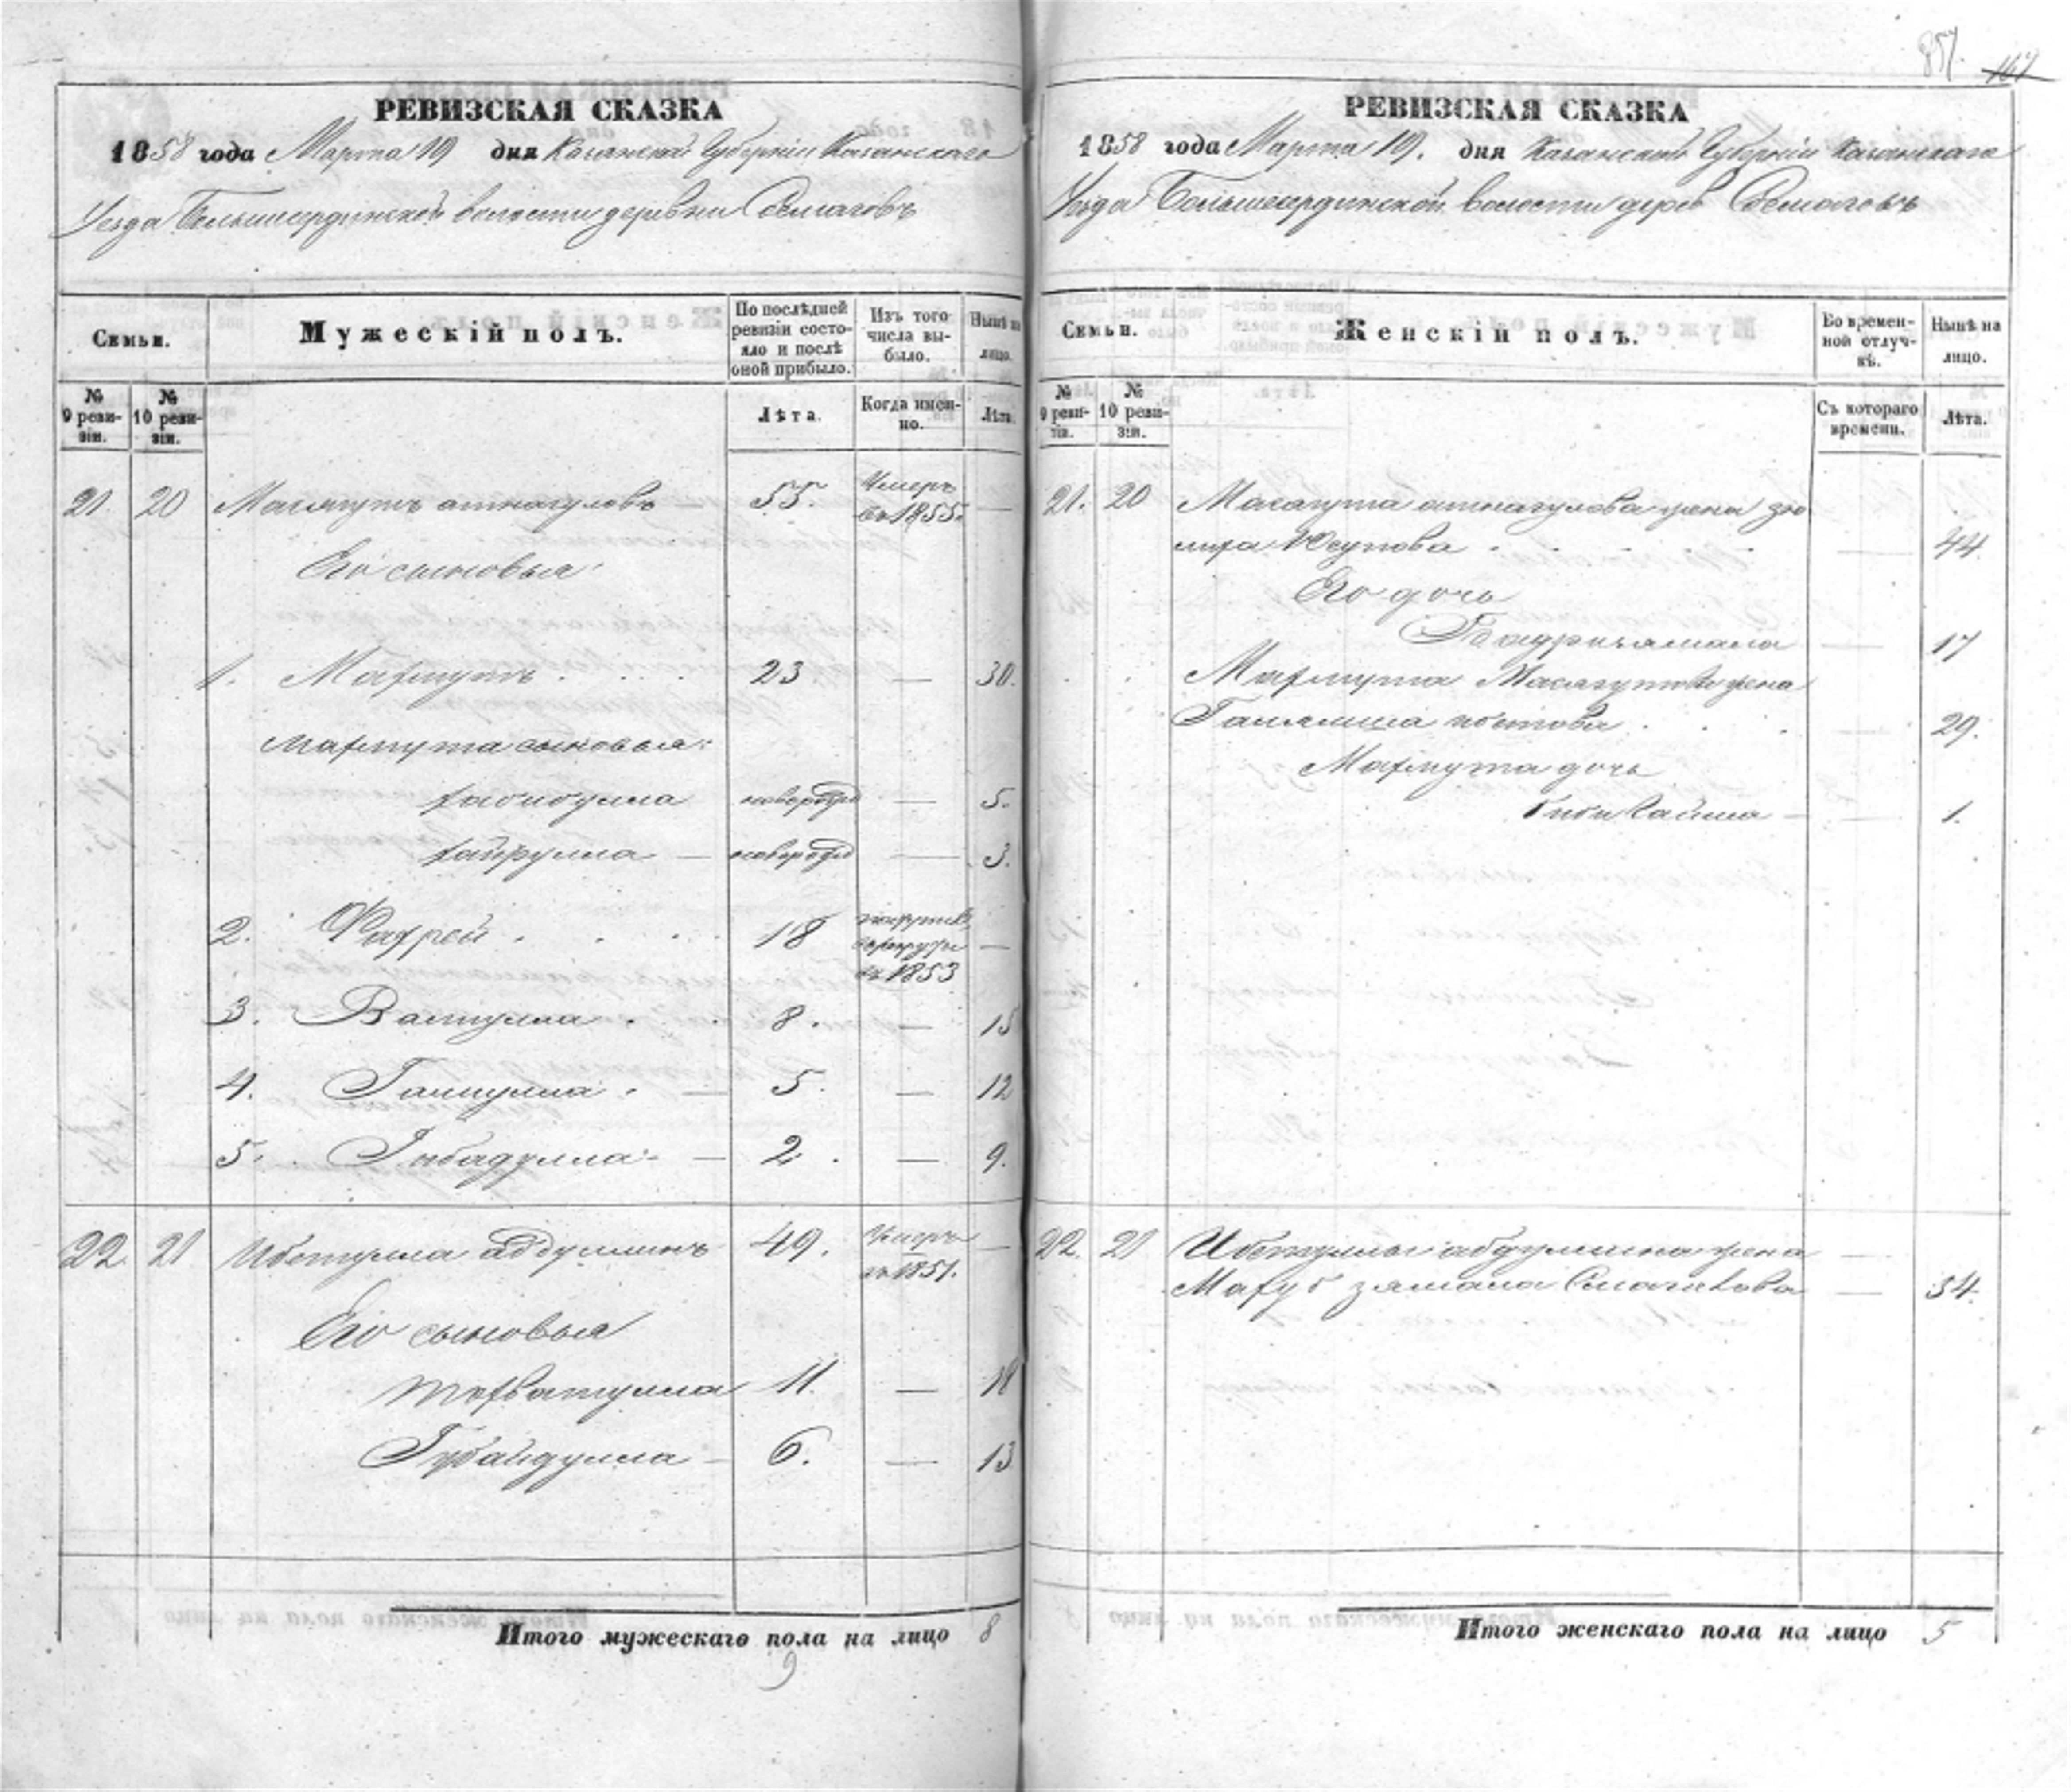 857. 167
РЕВИЗСКАЯ СКАЗКА
1858 года Марта 19 дня Казанской Губернии Казанскаго
Уезда Большесердинской волости деревни
Семьи.
Мужескій полъ.
По послѣдней ревизіи состояло и послѣ оной прибыло.
Изъ того числа выбыло.
Нынѣ на лицо.
№ 9 ревизіи.
№ 10 ревизіи.
Лѣта.
Когда именно.
Лѣта.
21. 20 Масягутъ атнагуловъ 55. Умеръ въ 1855. —
Его сыновья
1. Махмутъ 23 — 30.
Махмута сыновья:
хабибулла новорожд — 5.
хайрулла — новорожд — 3.
2. Фахрей 18 въ 1853 —
3. Валиулла 8. — 15
4. Галиулла 5. — 12
5. Гибадулла — 2. — 9.
22. 21 Ибетулла абдуллинъ 49. Умеръ въ 1851. —
Его сыновья
11. — 18
Губайдулла — 6. — 13
Итого мужескаго пола на лицо 8
9
РЕВИЗСКАЯ СКАЗКА
1858 года Марта 19. дня Казанской Губерніи Казанскаго
Уѣзда Большесердинской волости дерев
Семьи.
Женскій полъ.
Во временной отлучкѣ.
Нынѣ на лицо.
№ 9 ревизіи.
№ 10 ревизіи.
Съ котораго времени.
Лѣта.
21. 20 Масягута атнагулова жена зю
Юсупова — 44.
Его дочь
— 17
Махмута Масягутова жена
— 29.
Махмута дочь
— 1.
22. 21 Ибетуллы абдуллина жена —
Махубзямала — 54.
Итого женскаго пола на лицо 5